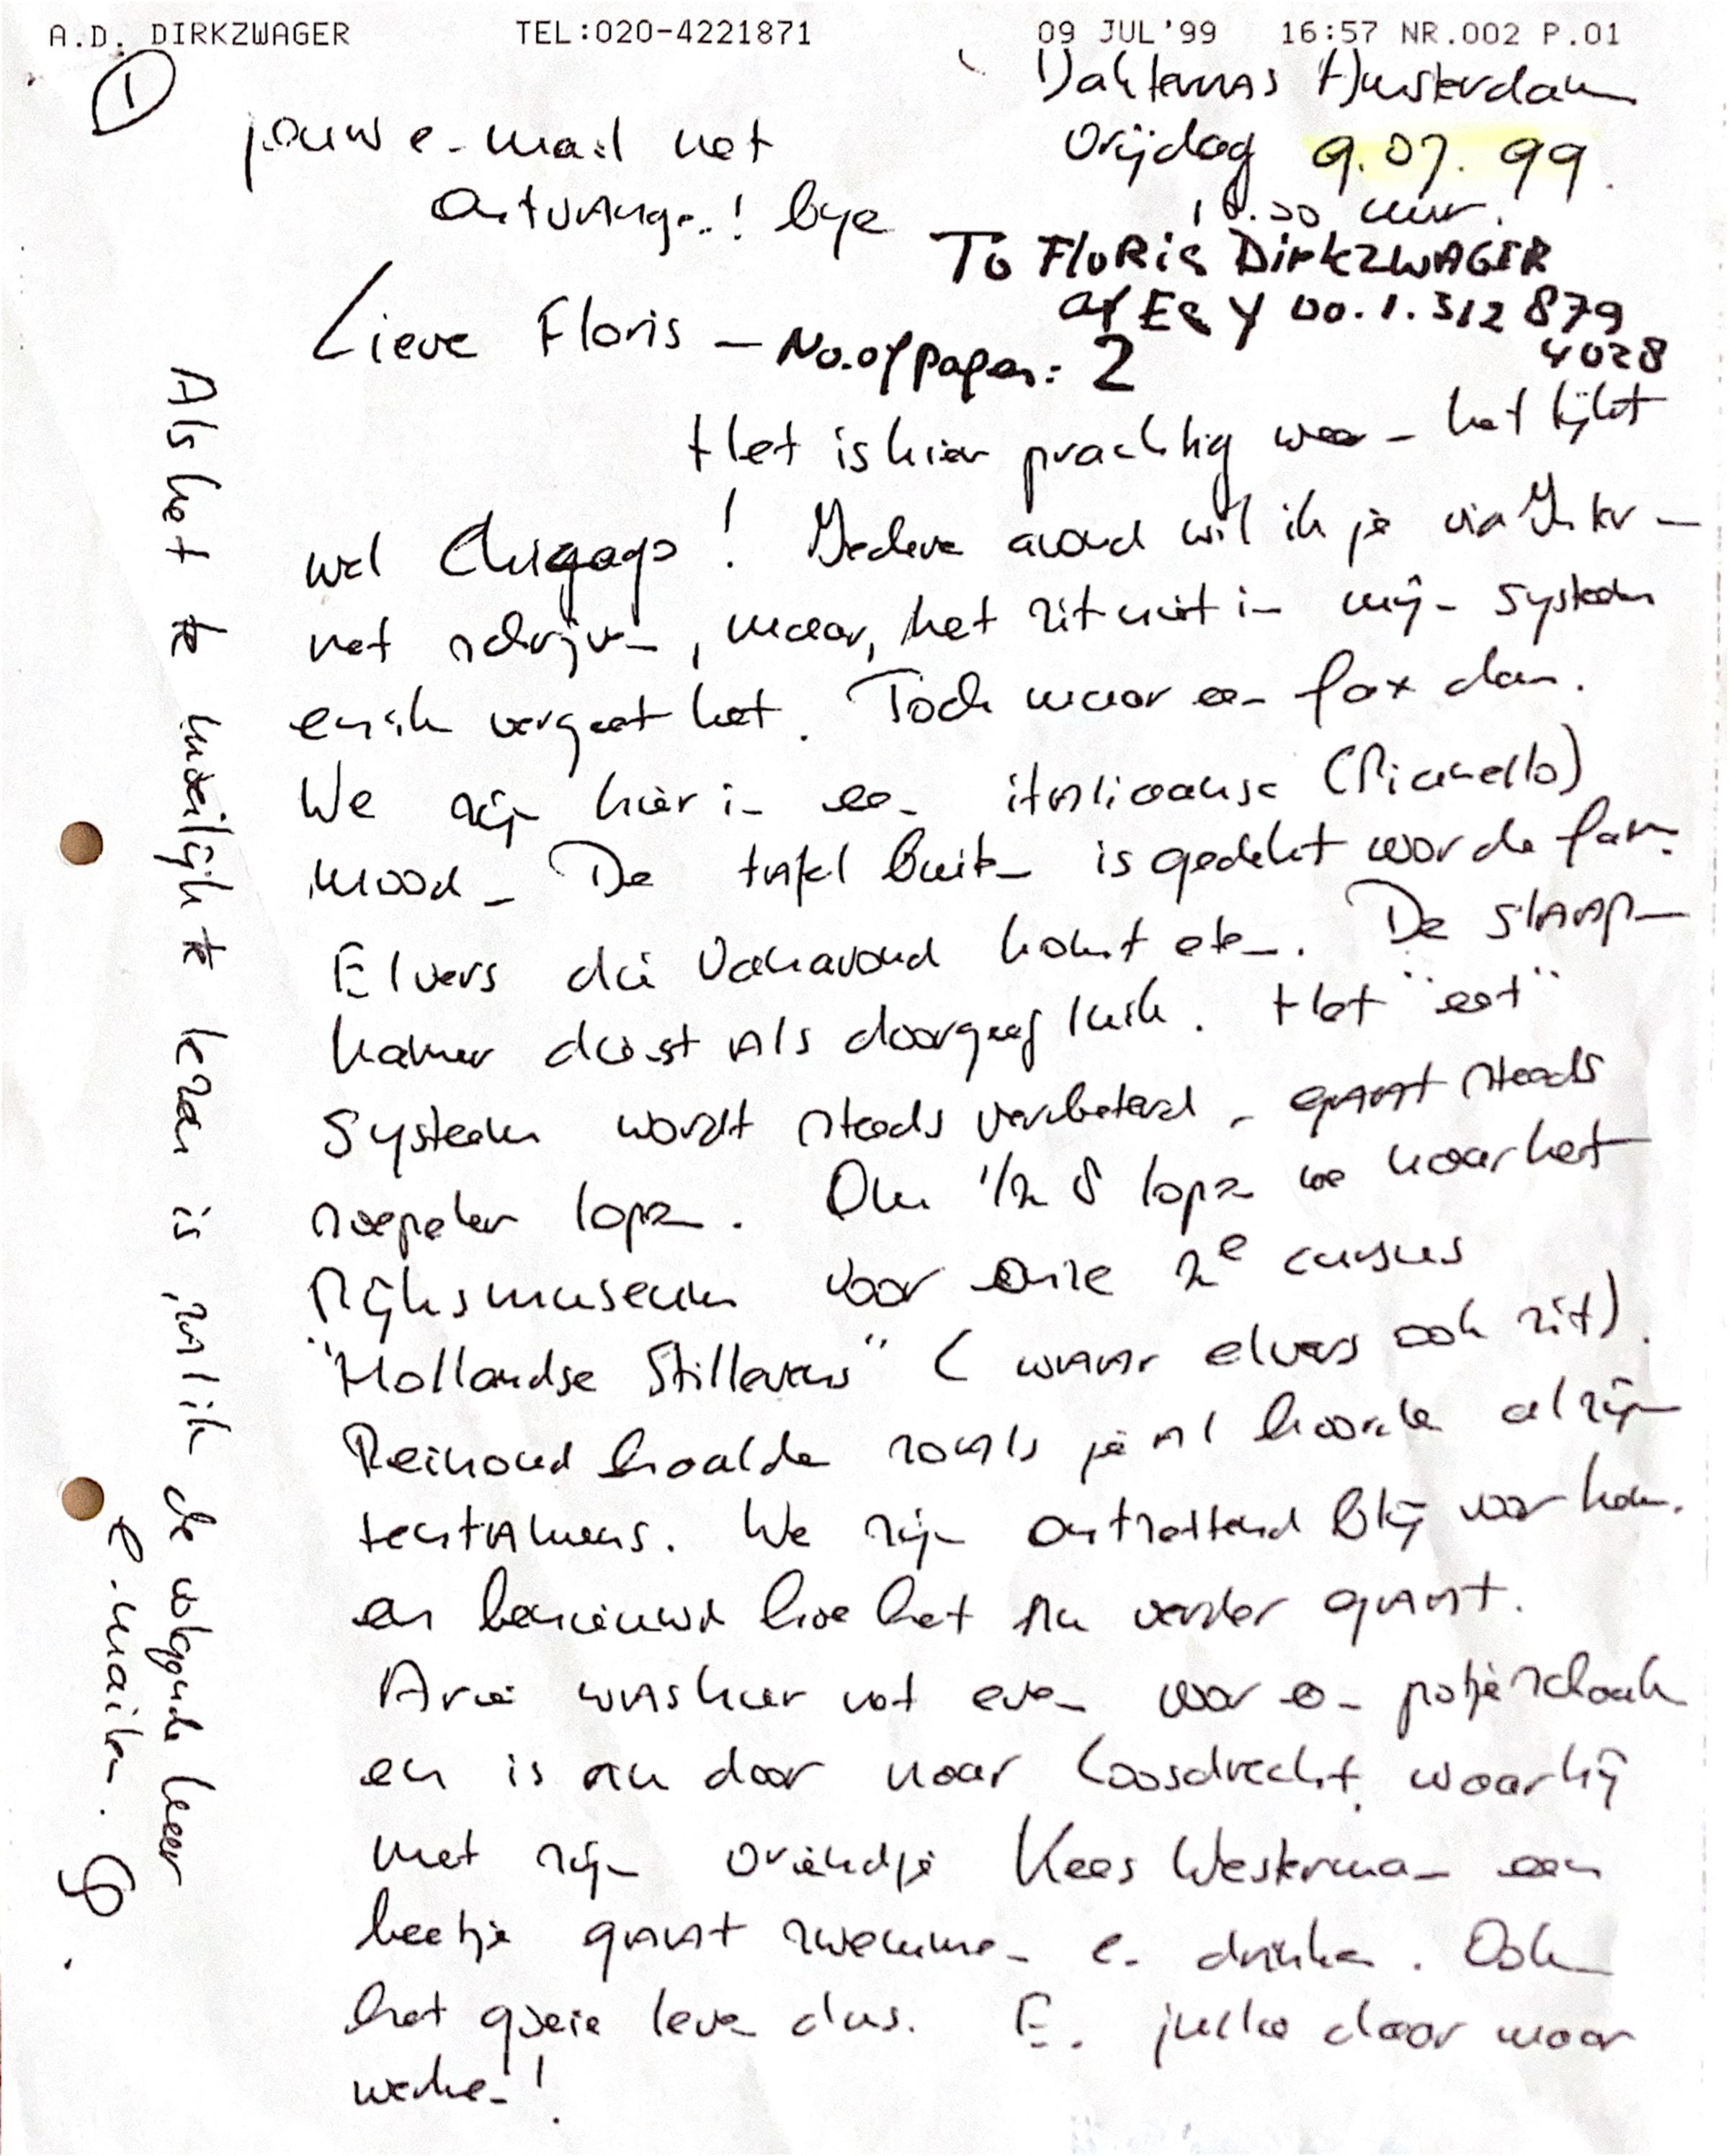 A.D. DIRKZWAGER TEL:020-4221871 09 JUL'99 16:57 NR.002 P.01
1
Dakterras Amsterdam
vrijdag 9.07.99.
uur.
jouw e-mail net
ontvangen! bye
To FLORIS DIRKZWAGER
at E&Y 00.1.312 879
4028
Lieve Floris – No. of pages: 2
Het is hier prachtig weer – het lijkt
wel Chigago! Iedere avond wil ik je via Inter-
net schrijven, maar, het zit niet in mijn systeem
en ik vergeet het. Toch maar een fax dan.
We zijn hier in een italiaanse (Picanello)
mood – De tafel buiten is gedekt voor de fam.
Elvers die vanavond komt eten. De slaap-
kamer dienst als doorgeef luik. Het "eet"
systeem wordt steeds verbeterd – gaat steeds
soepeler lopen. Om 1/2 8 lopen we naar het
Rijksmuseum voor onze 2e cursus
"Hollandse Stillevens" (waar elvers ook zit).
Reinoud haalde zoals je al hoorde al zijn
tentamens. We zijn ontzettend blij voor hem.
en benieuwd hoe het nu verder gaat.
Arie was hier net even voor een potje schaak
en is nu door naar Loosdrecht waar hij
met zijn vriendje Kees Westerman een
beetje gaat zwemmen en drinken. Ook
het goeie leven dus. En jullie daar maar
werken!
Als het te moeilijk te lezen is, zal ik de volgende keer
e-mailen.